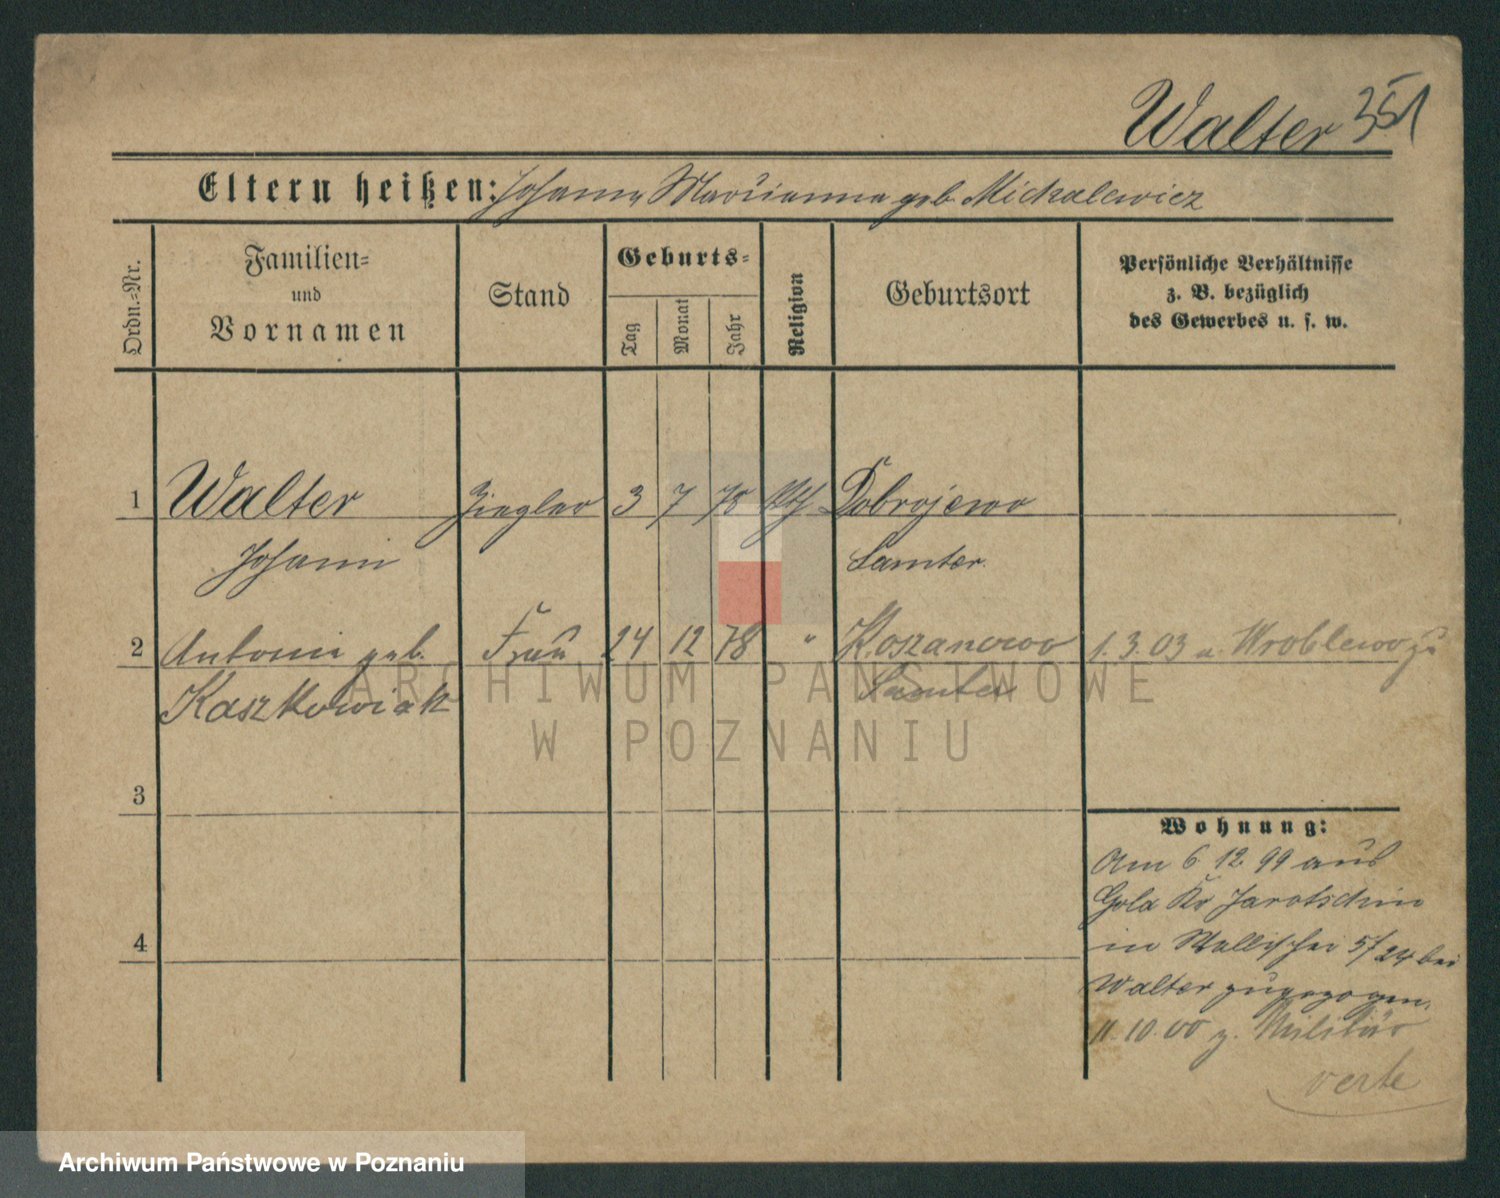 Walter 351
Eltern heißen: Johann, Marianna geb. Michalewicz
Ordn.-Nr.
Familien-
und
Vornamen
Stand
Geburts-
Tag
Monat
Jahr
Religion
Geburtsort
Persönliche Verhältnisse
z. B. bezüglich
des Gewerbes u. s. w.
1 Walter Ziegler 3 7 78 kth Dobrojewo
Johann Samter.
2 Antonie geb. Frau 24 12 78 " Koszanowo 1. 3. 03 a. Wroblewo zu
Kaszkowiak Samter
3
4
Wohnung:
Am 6 12. 99 aus
Gola Kr Jarotschin
in Wallischei 5/24 bei
Walter zugezogen.
11. 10. 00 z. Militär
verte
ARCHIWUM PAŃSTWOWE
W POZNANIU
Archiwum Państwowe w Poznaniu